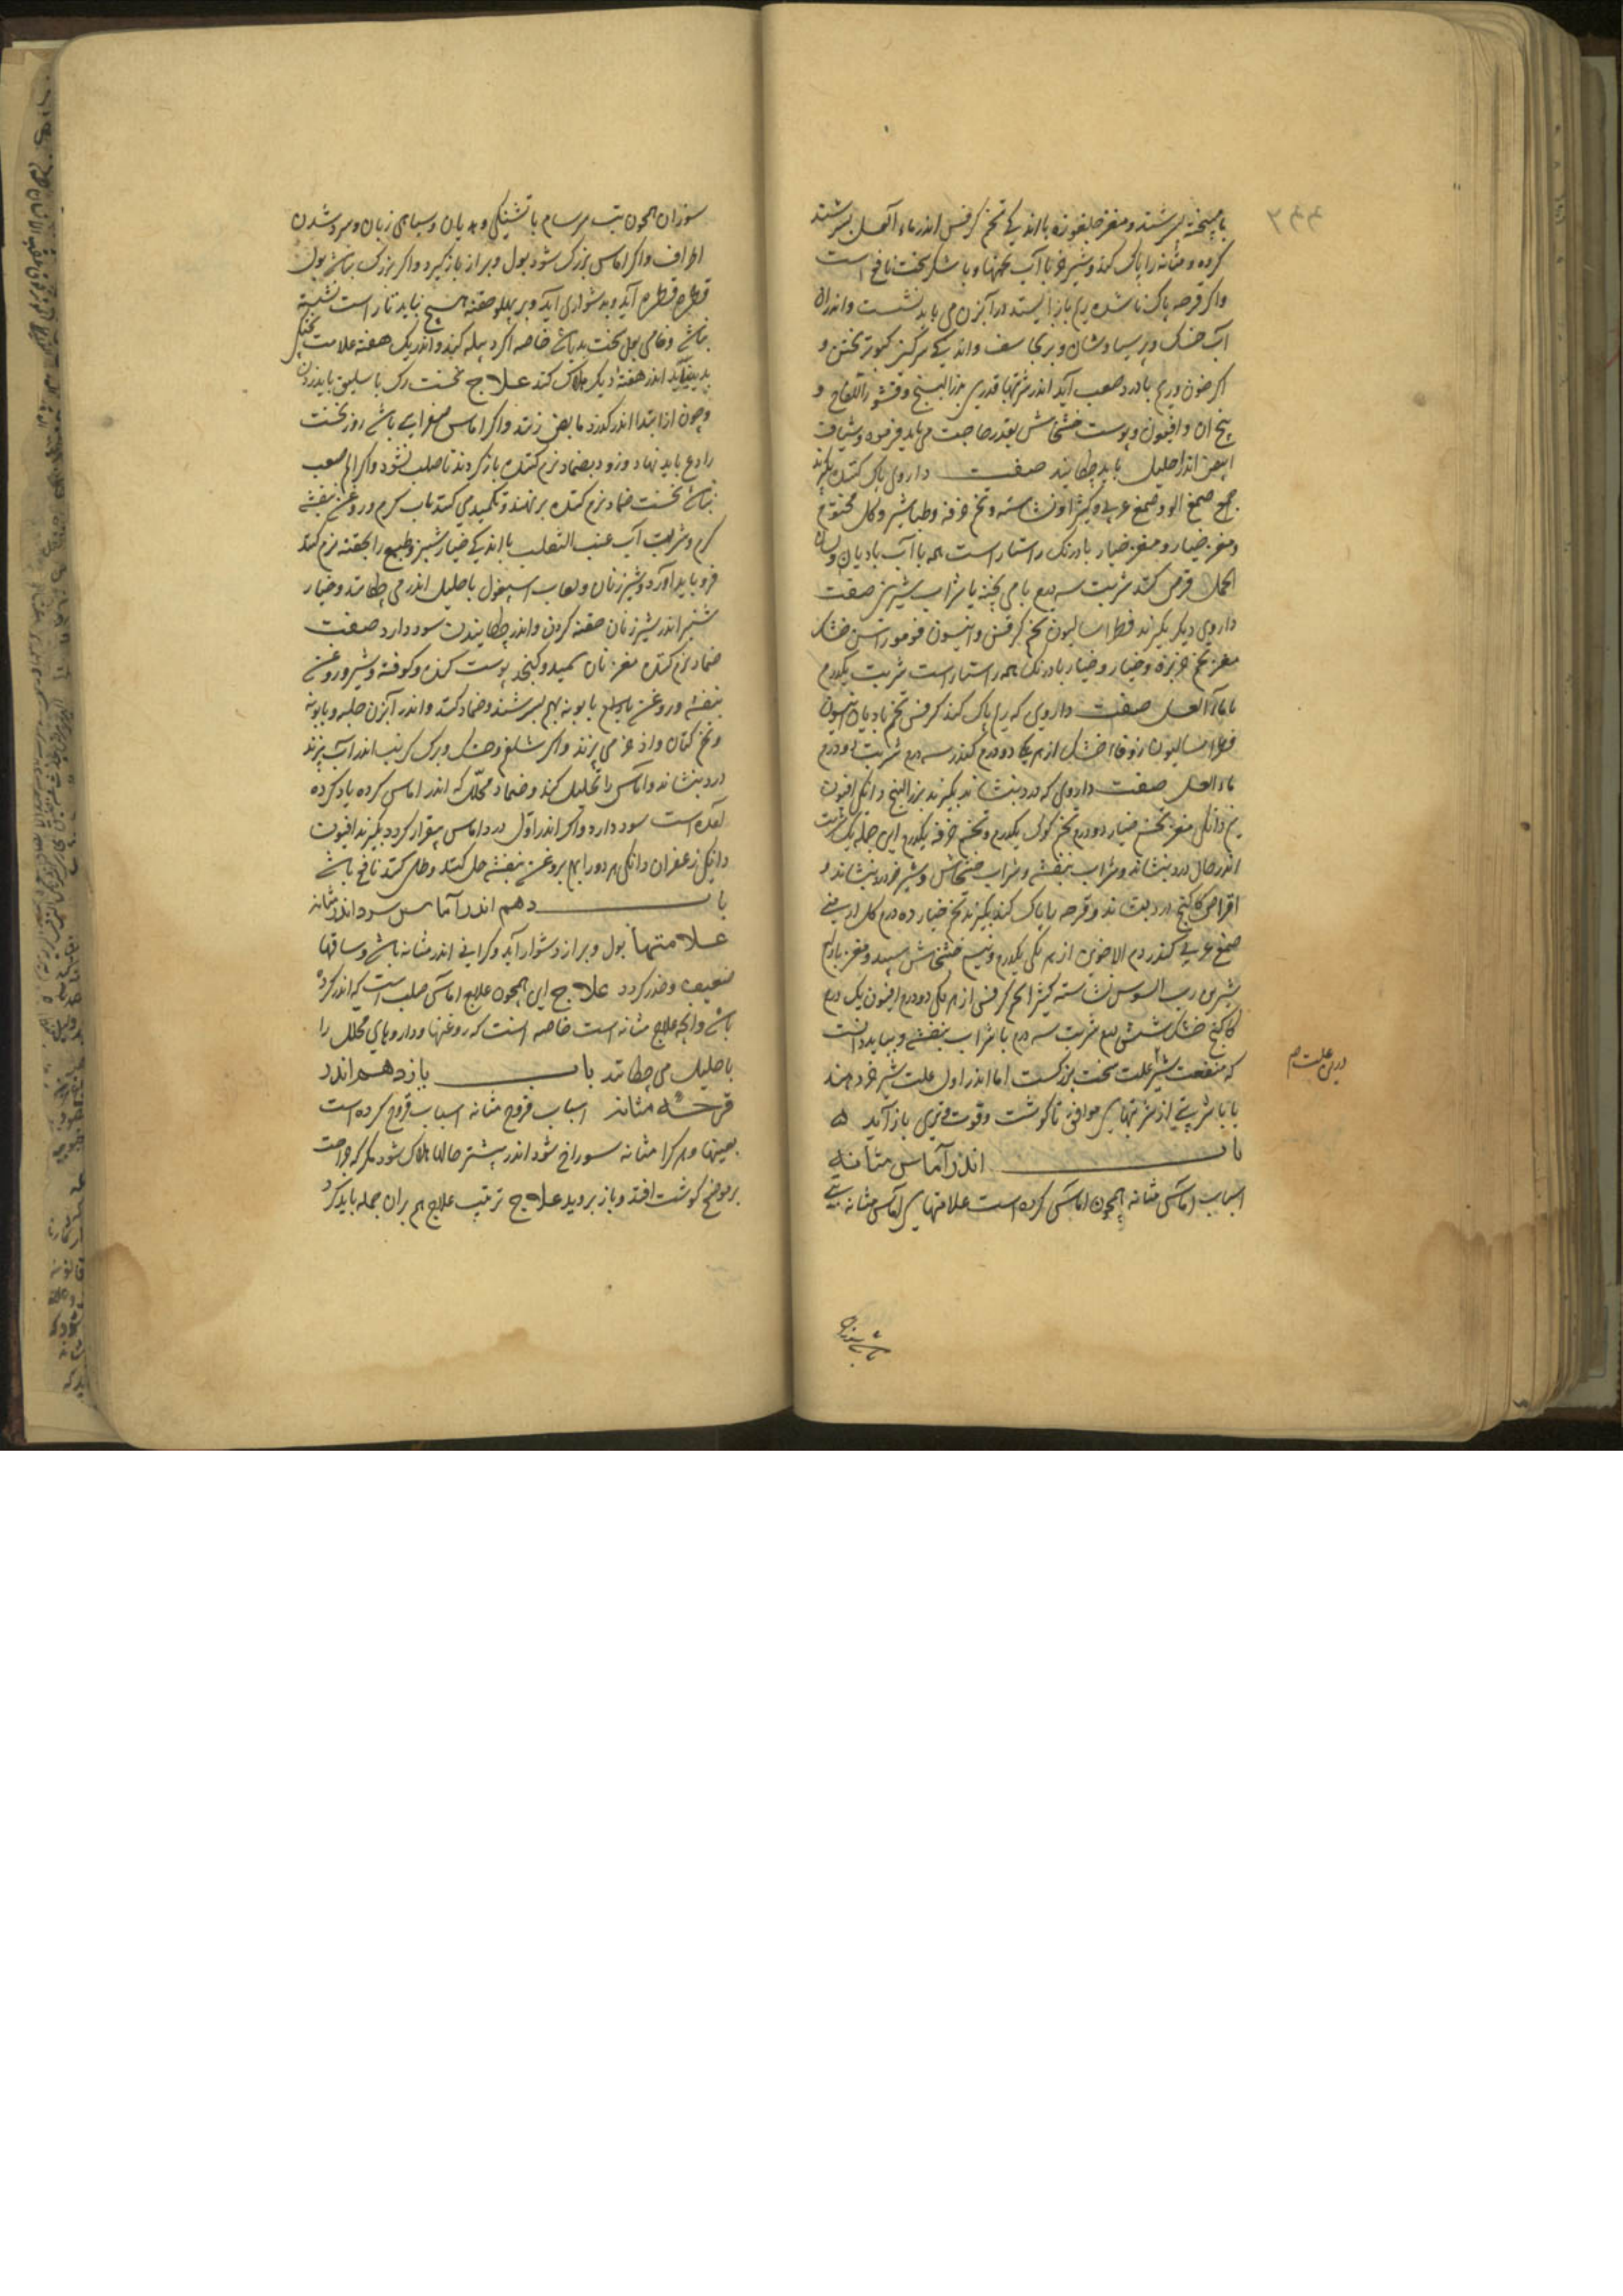 با میپخته بسرشند و مغز جلغوزه با اندکی تخم کرفس اندر ماء العسل بسرشند
کرده و مثانه را پاک کند و شیر خر با آب تخمها و با شکر سخت نافع است
واکر قرحه پاک ناشده ریم باز ایستد در آبزن می باید نشست و اندران
آب خسک و پرسیاوشان و برنجاسف و اندکی سرکین کبوتر پختن و
اکر خون و ریم با درد صعب آید اندر شربتها قدری بزر البنج و قشور اللفاح و
بیخ آن و افیون و پوست خشخاش بقدر حاجت می باید فرمود و شیاف
ابیض اندر احلیل باید چکانید صفت داروی پاک کننده بکیرند
صمغ الو و صمغ عربی و کثیرا و نشاسته و تخم خرفه و طباشیر و کل مختوم
و مغز خیار و مغز خیار بادرنک راستا راست همه با آب بادیان و لسان
الحمل قرص کنند شربت سه درم با می پخته یا شراب شیرین صفت
داروی دیکر بکیرند فطراسالیون تخم کرفس و انیسون فو مو راسن خشک
مغز تخم خربزه و خیار و خیار بادرنک همه راستا راست شربت یکدرم
با ماء العسل صفت داروی که ریم پاک کند کرفس تخم بادیان انیسون
فطراسالیون زوفاء خشک از هر یکی دو درم کندر سه درم شربت دو درم
ماء العسل صفت داروی که درد بنشاند بکیرند بزر البنج دانکی افیون
نیم دانکی مغز تخم خیار دو درم تخم کوک یکدرم و تخم خرفه یکدرم این جمله یک شربت
اندر حال درد بنشاند و شراب بنفشه و شراب خشخاش و شیر خر درد بنشاند و
اقراص کاکنج درد بنشاند و قرحه را پاک کند بکیرند تخم خیار ده درم کل ارمنی
صمغ عربی کندر دم الاخوین از هر یکی یکدرم و نیم خشخاش سپید و مغز بادام
شیرین رب السوس نشاسته کثیرا تخم کرفس از هر یکی دو درم افیون یک درم
کاکنج خشک شش درم شربت سه درم با شراب بنفشه و بباید دانست
که منفعت شیر علت سخت بزرکست اما اندر اول علت شیر خر دهند
با شربتی از شربتهای موافق تا کوشت و قوت و تری باز آید ۵
باب اندر آماس مثانه
اسباب اماس مثانه همچون اماس کرده است علامتهای آماس مثانه تبی
درین علت هم
باشد سوزان
سوزان همچون تب سرسام با تشنکی و هذیان و سیاهی زبان و سرد شدن
اطراف و اکر اماس بزرک شود بول و براز باز کیرد و اکر بزرک نباشد بول
قطره قطره آید و بدشواری آید و بر پهلو خفته هیچ نیاید تا راست نشسته
نباشد و خامی بول سخت بد باشد خاصه اکر دبیله کردد و اندر یک هفته علامت پختکی
پدید نیاید اندر هفته دیکر هلاک کند علاج نخست رک باسلیق باید زدن
و چون از ابتدا اندر کذرد مابض زنند و اکر اماس صفرایی باشد روز نخست
رادع باید نهاد و زود بضماد نرم کننده باز کردند تا صلب نشود و اکر الم صعب
نباشد نخست ضماد نرم کننده بر نهند و تکمید می کنند باب کرم و روغن بنفشه
کرم و شربت آب عنب الثعلب با اندکی خیار شنبر و طبع را بحقنه نرم کنند
فرو باید آورد و شیر زنان و لعاب اسپغول باحلیل اندر می چکانند و خیار
شنبر اندر شیر زنان حقنه کردن و اندر چکانیدن سود دارد صفت
ضماد نرم کننده مغز نان سمید و کنجد پوست کنده و کوفته و شیر و روغن
بنفشه و روغن بابونه بهم بسرشند و ضماد کنند و اندر آبزن حلبه و بابونه
و تخم کتان و اذخر می پزند و اکر شلغم و خسک و برک کرنب اندر آب پزند
درد بنشاند و آماس را تحلیل کند و ضماد محلل که اندر اماس کرده یاد کرده
آمده است سود دارد و اکر اندر اول درد اماس بیقرار کردد بکیرند افیون
دانکی زعفران دانکی هر دو را بهم بروغن بنفشه حل کنند و طلی کنند نافع باشد
باب دهم اندر آماس سرد اندر مثانه
علامتها بول و براز دشوار آید و کرانی اندر مثانه باشد و ساقها
ضعیف و خدر کردد علاج این همچون علاج اماس صلب است که اندر کرده
باشد و انچه علاج مثانه است خاصه آنست که روغنها و داروهای محلل را
باحلیل می چکانند باب یازدهم اندر
قرحه مثانه اسباب قروح مثانه اسباب قروح کرده است
بعینها و هر کرا مثانه سوراخ شود اندر بیشتر حالها هلاک شود مکر که جراحت
بر موضع کوشت افتد و باز بروید علاج ترتیب علاج هم بران جمله باید کرد